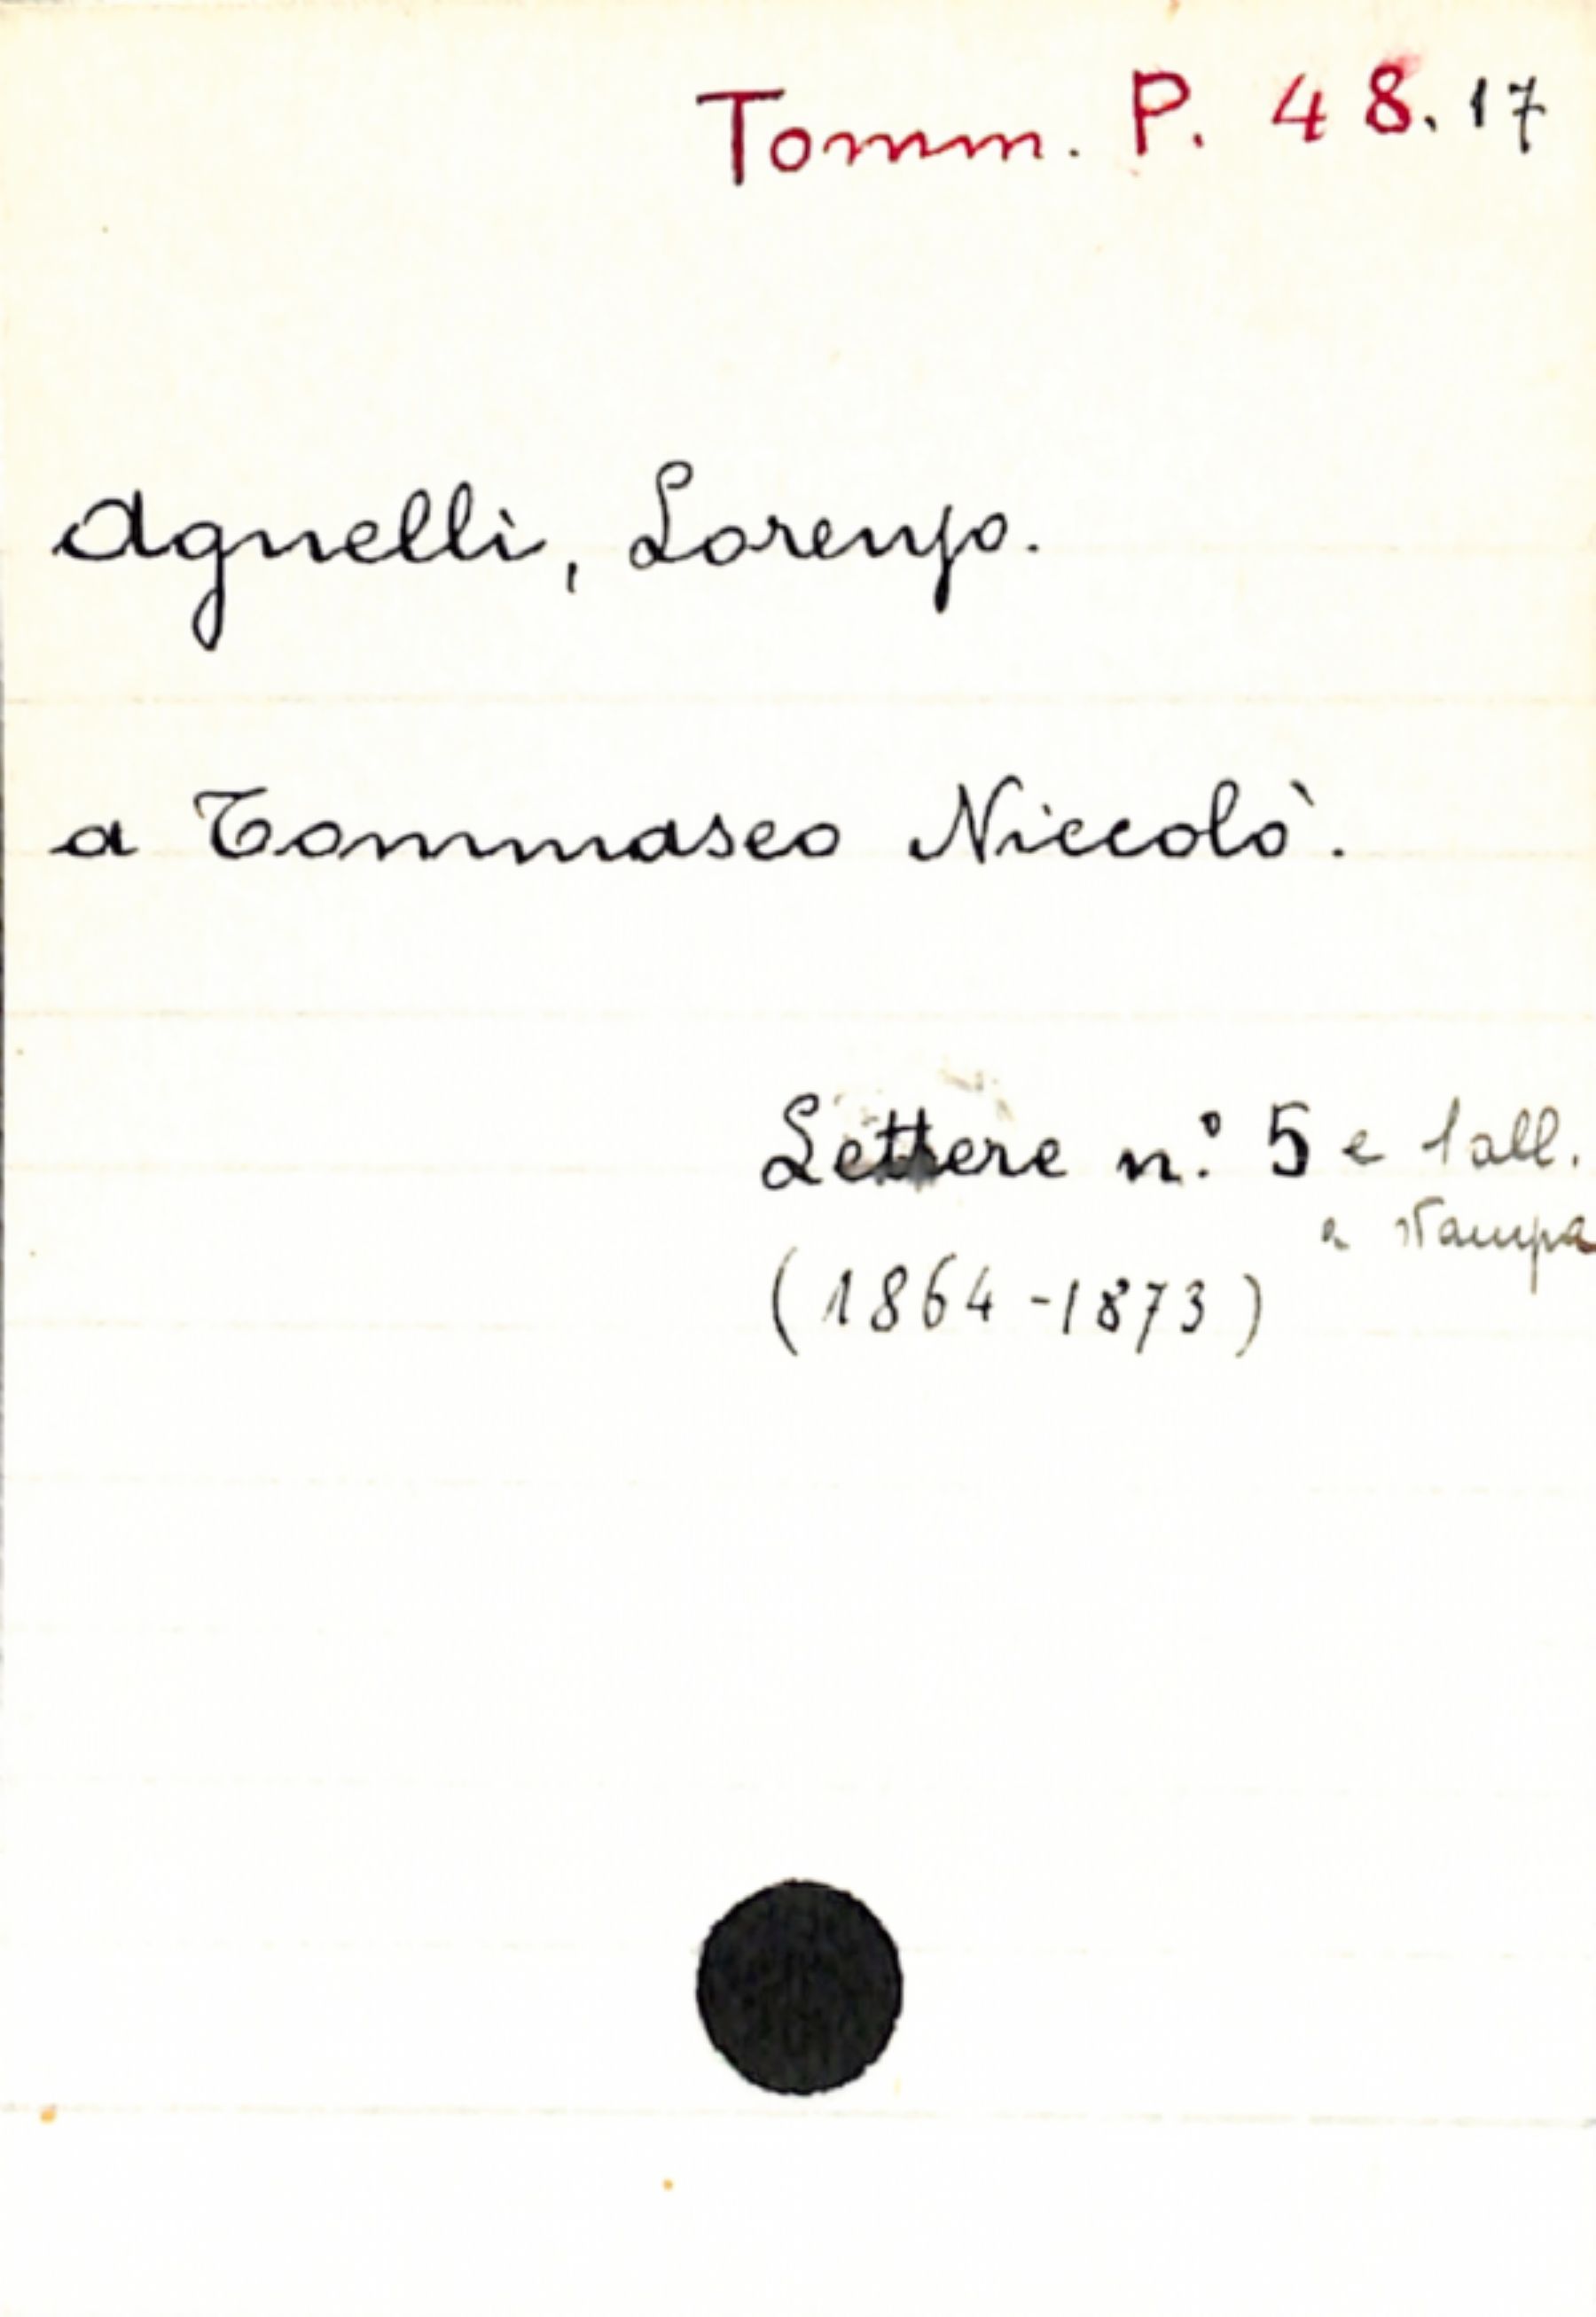 Tomm. P. 48.17
Agnelli, Lorenzo.
a Tommaseo Niccolò.
Lettere n.° 5 e 1 all.
a stampa
(1864-1873)